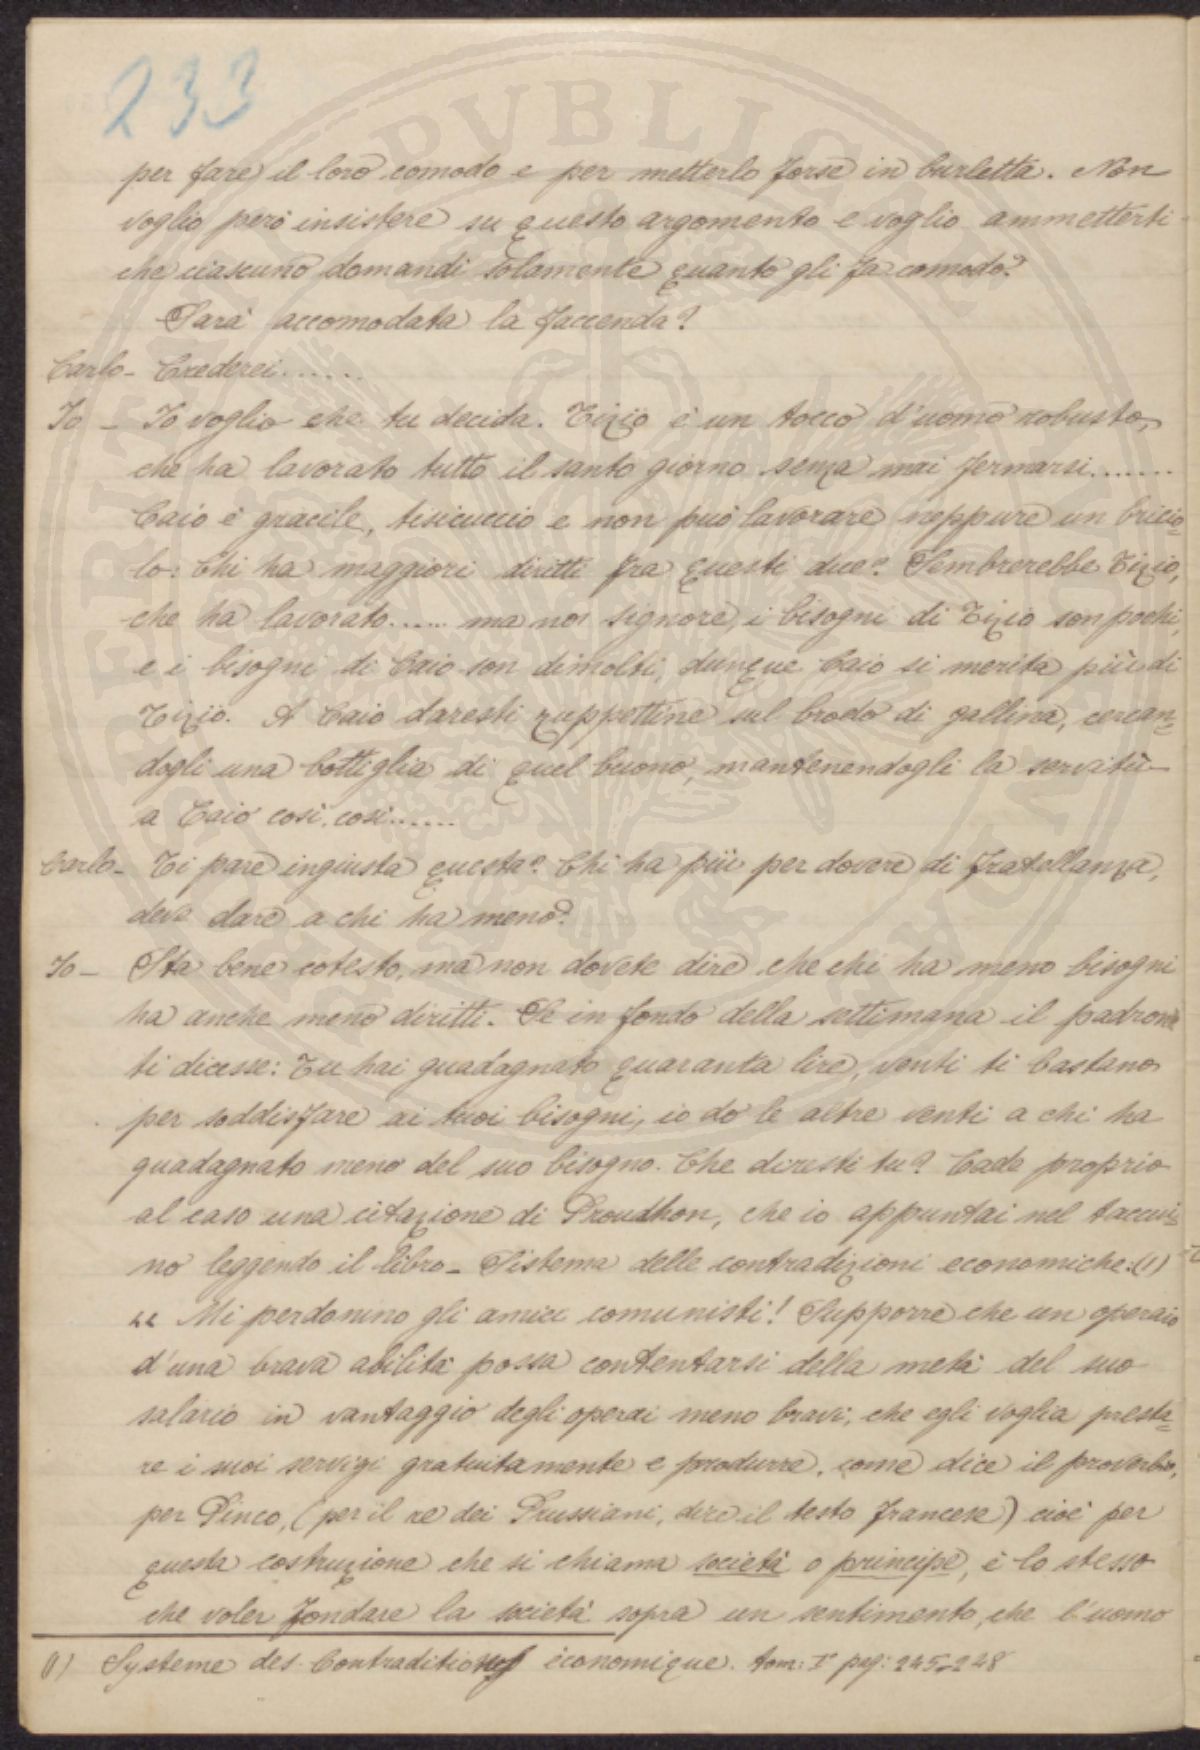 233
per fare il loro comodo e per metterlo forse in burletta. Non
voglio però insistere su questo argomento e voglio ammetterti
che ciascuno domandi solamente quanto gli fa comodo?
Sarà accomodata la faccenda?
Carlo - Crederei......
Io - Io voglio che tu decida. Tizio è un tocco d'uomo robusto,
che ha lavorato tutto il santo giorno senza mai fermarsi.......
Caio è gracile, tisicuccio e non può lavorare neppure un bricio=
lo: Chi ha maggiori diritti fra questi due? Sembrerebbe Tizio,
che ha lavorato...... ma no signore, i bisogni di Tizio son pochi,
e i bisogni di Caio son dimolti, dunque Caio si merita più di
Tizio. A Caio daresti zuppettine sul brodo di gallina, cercan=
dogli una bottiglia di quel buono, mantenendogli la servitù -
a Caio così, così......
Carlo - Ti pare ingiusta questa? Chi ha più per dovere di fratellanza,
deve dare a chi ha meno?
Io - Sta bene cotesto, ma non dovete dire che chi ha meno bisogni
ha anche meno diritti. Se in fondo della settimana il padrone
ti dicesse: Tu hai guadagnato quaranta lire, venti ti bastano
per soddisfare ai tuoi bisogni, io do le altre venti a chi ha
guadagnato meno del suo bisogno. Che diresti tu? Cade proprio
al caso una citazione di Proudhon, che io appuntai nel taccui=
no leggendo il libro - Sistema delle contradizioni economiche: (1)
" Mi perdonino gli amici comunisti! Supporre che un operaio
d'una brava abilità possa contentarsi della metà del suo
salario in vantaggio degli operai meno bravi, che egli voglia presta=
re i suoi servigi gratuitamente e produrre, come dice il proverbio,
per Pinco, (per il re dei Prussiani, dice il testo francese) cioè per
questa costruzione che si chiama società o principe, è lo stesso
che voler fondare la società sopra un sentimento, che l'uomo
(1) Systeme des Contraditions économique. tom: I° pag: 245-248
PVBLICA